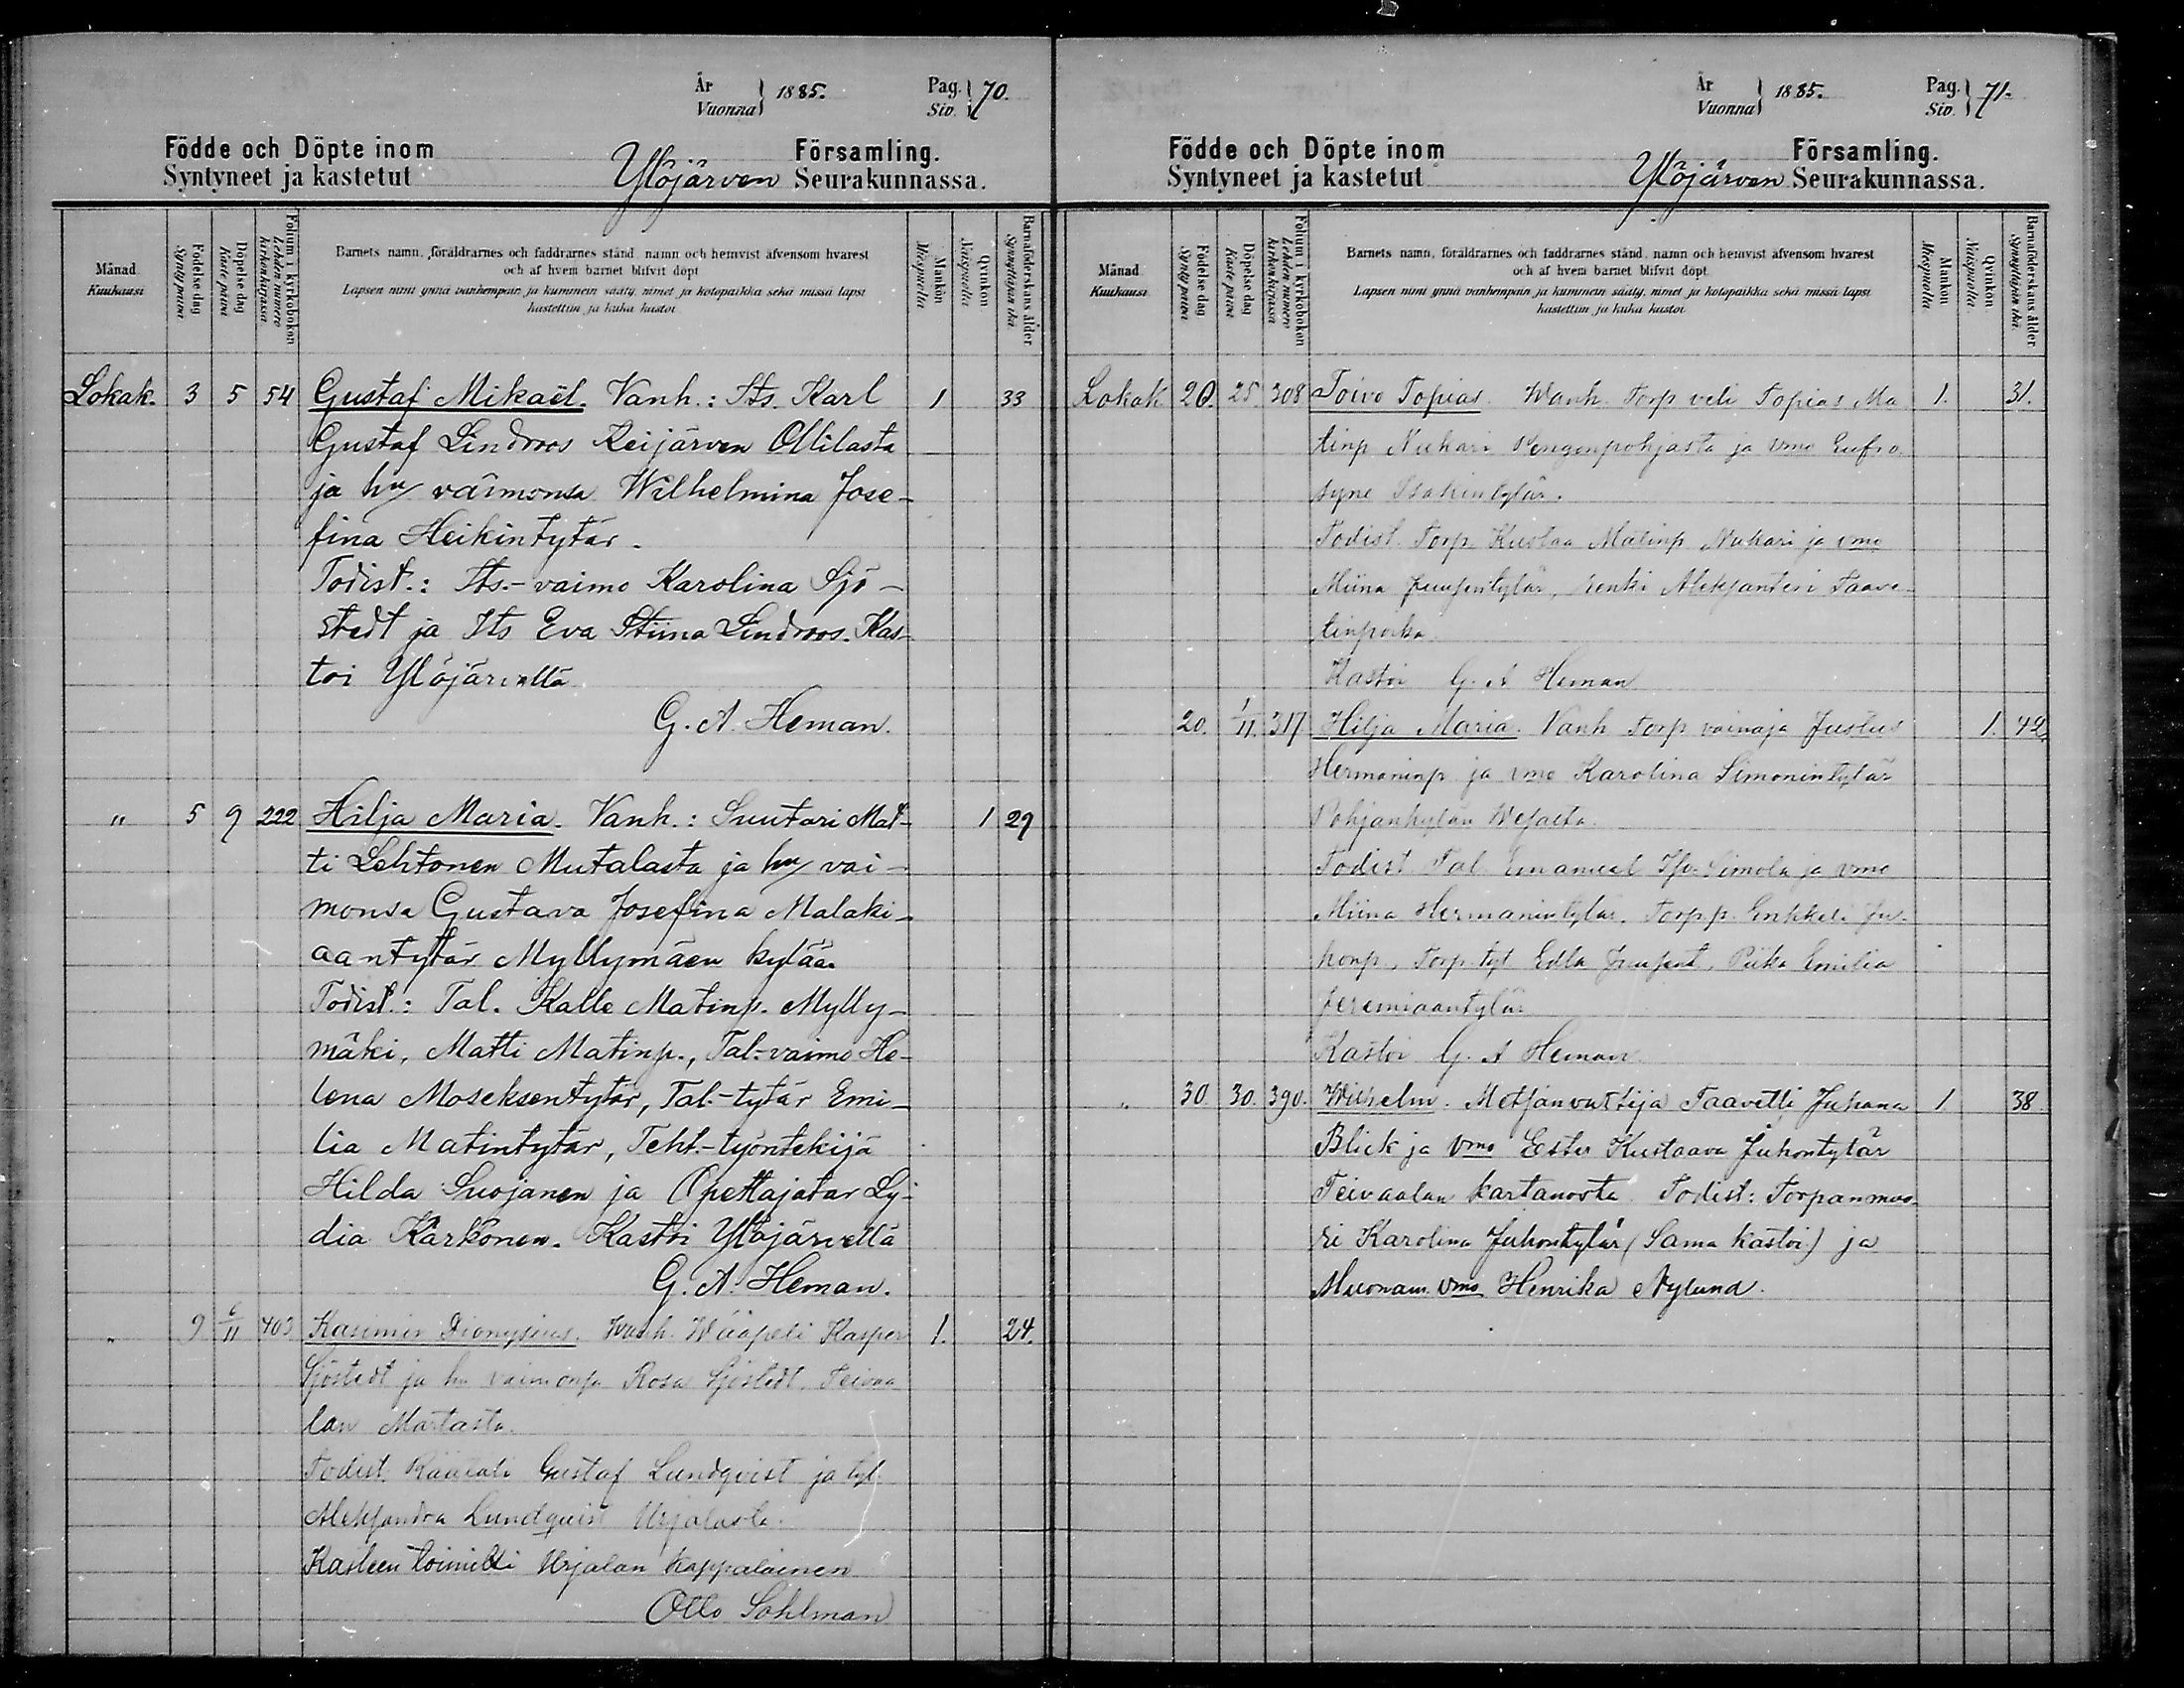 År
Vuonna } 1885.
Pag.
Siv. } 70.
Födde och Döpte inom Församling.
Syntyneet ja kastetut Ylöjärven Seurakunnassa.
Månad
Kuukausi
Födelse dag
Synty päivä
Döpelse dag
Kaste päivä
Folium i kyrkoboken
Lehden numero kirkonkirjassa
Barnets namn, föräldrarnes och faddrarnes stånd namn och hemvist äfvensom hvarest
och af hvem barnet blifvit döpt
Lapsen nimi ynnä vanhempain ja kummein sääty, nimet ja kotopaikka sekä missä lapsi
kastettiin ja kuka kastoi
Mankön
Miespuolia
Qvinkön
Naispuolia
Barnaföderskans ålder
Synnyttäjän ikä
Lokak. 3 5 54 Gustaf Mikaël. Vanh.: Its. Karl 1 33
Gustaf Lindroos Keijärven Ollilasta
ja hn vaimonsa Wilhelmina Jose-
fina Heikintytär.
Todist.: Its.-vaimo Karolina Sjö-
stedt ja Its Eva Stiina Lindroos. Kas-
toi Ylöjärvellä
G. A. Heman.
" 5 9 222 Hilja Maria. Vanh.: Suutari Mat- 1 29
ti Lehtonen Mutalasta ja hn vai-
monsa Gustava Josefina Malaki-
aantytär Myllymäen kylää.
Todist.: Tal. Kalle Matinp. Mylly-
mäki, Matti Matinp., Tal.-vaimo He-
lena Moseksentytär, Tal.-tytär Emi-
lia Matintytär, Teht.-työntekijä
Hilda Suojanen ja Opettajatar Ly-
dia Kärkönen. Kastoi Ylöjärvellä
G. A. Heman.
" 9 6/11 403 Kasimir Dionysius. Wanh. Wääpeli Kasper 1. 24.
Sjöstedt ja hn vaimonsa Rosa Sjöstedt. Teivaa
lan Martasta.
Todist. Räätäli Gustaf Lundqvist ja tyt.
Aleksandra Lundqvist Urjalasta.
Kasteen toimitti Urjalan kappalainen
Otto Sohlman
År
Vuonna } 1885.
Pag.
Siv. } 71.
Födde och Döpte inom Församling.
Syntyneet ja kastetut Ylöjärven Seurakunnassa.
Månad
Kuukausi
Födelse dag
Synty päivä
Döpelse dag
Kaste päivä
Folium i kyrkoboken
Lehden numero kirkonkirjassa
Barnets namn, föräldrarnes och faddrarnes stånd, namn och hemvist äfvensom hvarest
och af hvem barnet blifvit döpt
Lapsen nimi ynnä vanhempain ja kummein sääty, nimet ja kotopaikka sekä missä lapsi
kastettiin ja kuka kastoi
Mankön
Miespuolia
Qvinkön
Naispuolia
Barnaföderskans ålder
Synnyttäjän ikä
Lokak 20. 25. 308 Toivo Topias. Wanh. Torp veli Topias Ma 1. 31.
tinp Nuhari Pengonpohjasta ja vmo Eufro
syne Isakintytär.
Todist. Torp. Kustaa Matinp Nuhari ja vmo
Miina Juusentytär, renki Aleksanteri Taave-
tinpoika
Kastoi G. A Heman
20. 1/11. 317 Hilja Maria. Vanh Torp vainaja Justus 1. 42.
Hermaninp ja vmo Karolina Simonintytär
Pohjankylän
Todist Tal. Emanuel Simola ja vmo
Miina Hermanintytär. Torp.p. Enkkeli Ju-
honp., Torp. tyt Edla Juusent, Piika Emilia
Jeremiaantytär
Kastoi G. A Heman
" 30. 30. 390. Wilhelm. Metsänvartija Taavetti Juhana 1. 38.
Blick ja vmo Ester Kustaava Juhontytär
Teivaalan kartanosta. Todist: Torpanmuo-
ri Karolina Juhontytär (Sama kastoi) ja
Muonam. vmo Henrika Nylund.